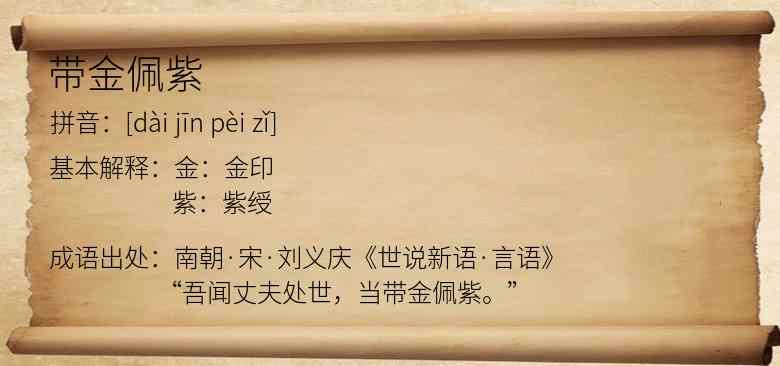 带金佩紫
拼音：[dài jīn pèi zǐ]
基本解释：金：金印
紫：紫绶
成语出处：南朝·宋·刘义庆《世说新语·言语》
“吾闻丈夫处世，当带金佩紫。”